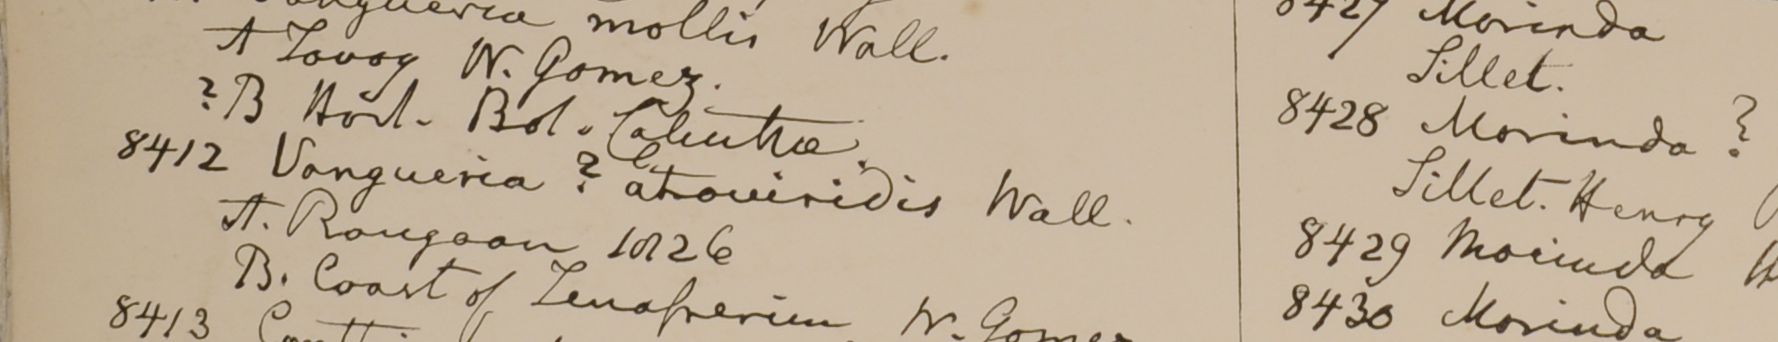 Vangueria mollis Wall.
A Tavoy W. Gomez.
? B Hort. Bot. Calcuttae.
8412 Vangueria ? atroviridis Wall.
A. Rangoon 1826
B. Coast of Tenasserim W. Gomez
8413
8427 Morinda
Sillet.
8428 Morinda ?
Sillet. Henry
8429 Morinda
8430 Morinda